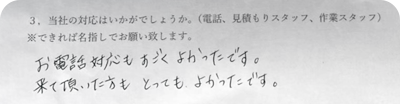 3．当社の対応はいかがでしょうか。（電話、見積もりスタッフ、作業スタッフ）
※できれば名指しでお願い致します。
お電話対応もすごくよかったです。
来て頂いた方もとってもよかったです。